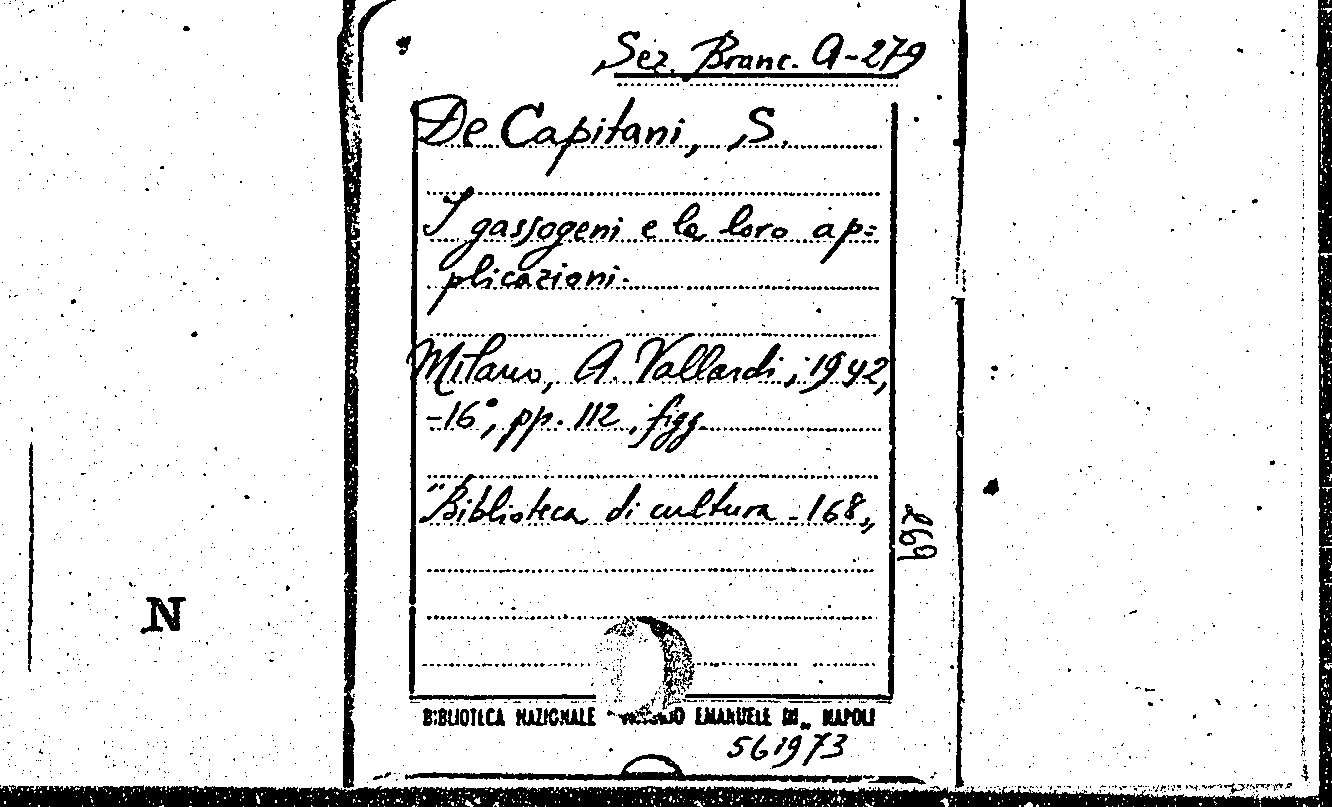 Sez. Branc. A-279
De Capitani, S.
I gassogeni e le loro ap=
plicazioni.
Milano, A. Vallardi, 1942,
-16°, pp. 112, figg.
"Biblioteca di cultura - 168„
269
N
BIBLIOTECA NAZIONALE EMANUELE III„ NAPOLI
561973